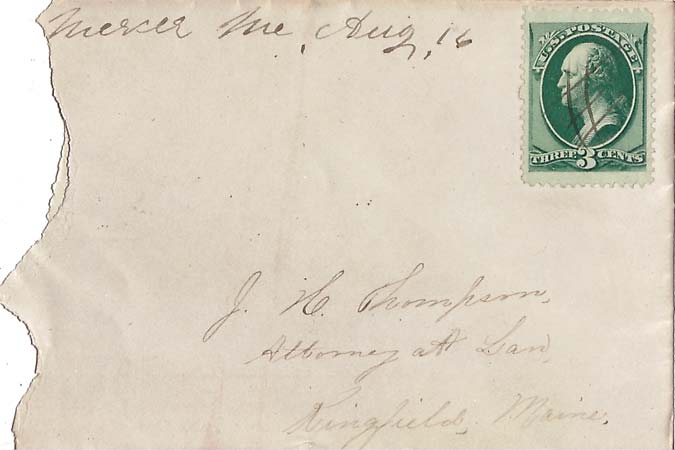 Mercer Me, Aug, 16
U.S. POSTAGE
THREE 3 CENTS
J. H. Thompson,
Attorney at Law,
Kingfield, Maine,